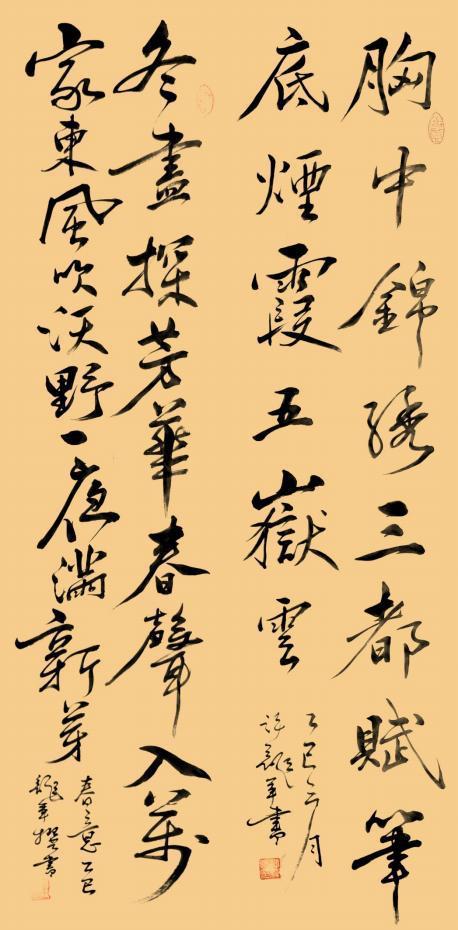 胸中錦绣三都賦筆
底煙霞五嶽雲
乙巳 月
許龍軍書
冬盡探芳華春聲入萬
家東風吹沃野一夜滿新芽
春之意 乙巳
龍軍撰書